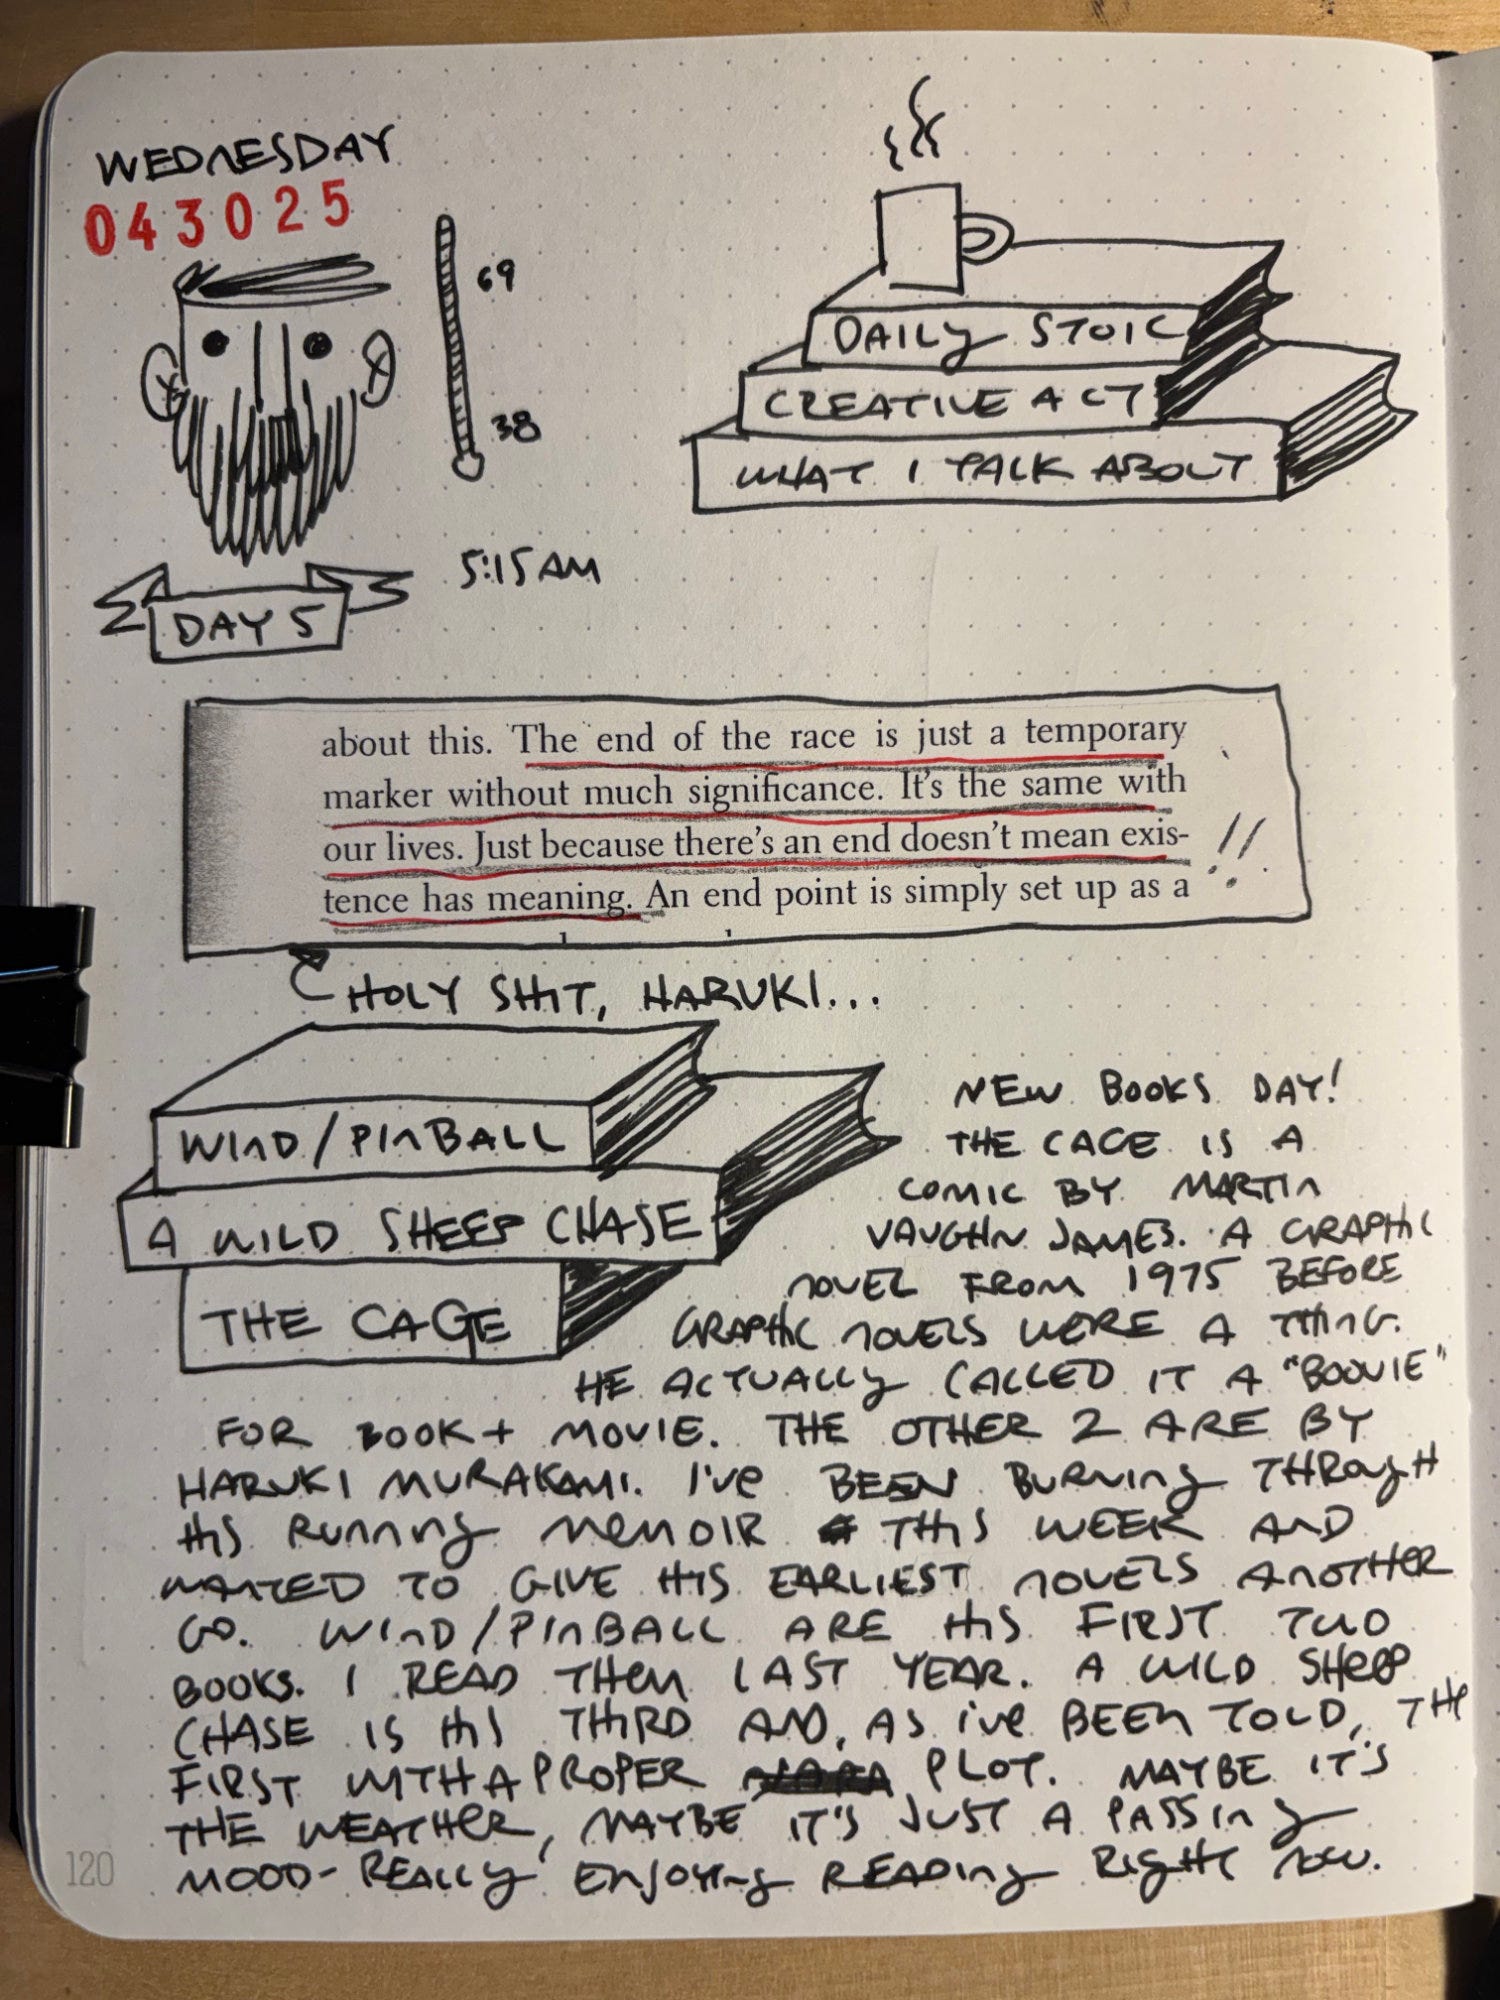 WEDNESDAY
043025
69
38
DAILY STOIC
CREATIVE ACT
WHAT I TALK ABOUT
5:15 AM
DAY 5
about this. The end of the race is just a temporary
marker without much significance. It's the same with
our lives. Just because there's an end doesn't mean exis-
tence has meaning. An end point is simply set up as a
!!
HOLY SHIT, HARUKI...
WIND/PINBALL
A WILD SHEEP CHASE
THE CAGE
NEW BOOKS DAY!
THE CAGE IS A
COMIC BY MARTIN
VAUGHN JAMES. A GRAPHIC
NOVEL FROM 1975 BEFORE
GRAPHIC NOVELS WERE A THING.
HE ACTUALLY CALLED IT A "BOOVIE"
FOR BOOK + MOVIE. THE OTHER 2 ARE BY
HARUKI MURAKAMI. I'VE BEEN BURNING THROUGH
HIS RUNNING MEMOIR THIS WEEK AND
WANTED TO GIVE HIS EARLIEST NOVELS ANOTHER
GO. WIND/PINBALL ARE HIS FIRST TWO
BOOKS. I READ THEM LAST YEAR. A WILD SHEEP
CHASE IS HIS THIRD AND, AS I'VE BEEN TOLD, THE
FIRST WITH A PROPER PLOT. MAYBE IT'S
THE WEATHER, MAYBE IT'S JUST A PASSING
MOOD- REALLY ENJOYING READING RIGHT NOW.
120